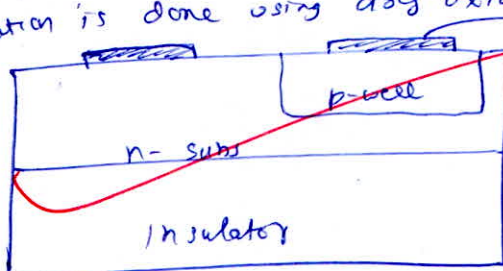 is done using dry oxi
p-well
n- subs
Insulator